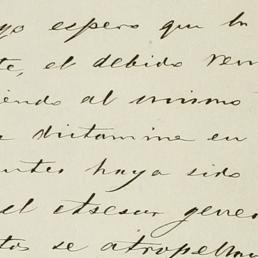 yo espero que la
te, el debido ren
iendo al mismo
e dictamine en
untes haya sido
el Asesor gener
tos se atropella